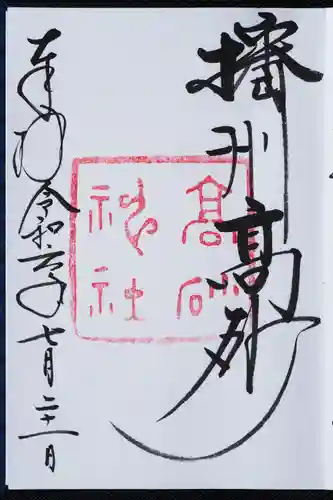 播州高砂
高砂神社
奉拝
令和六年七月二十一日